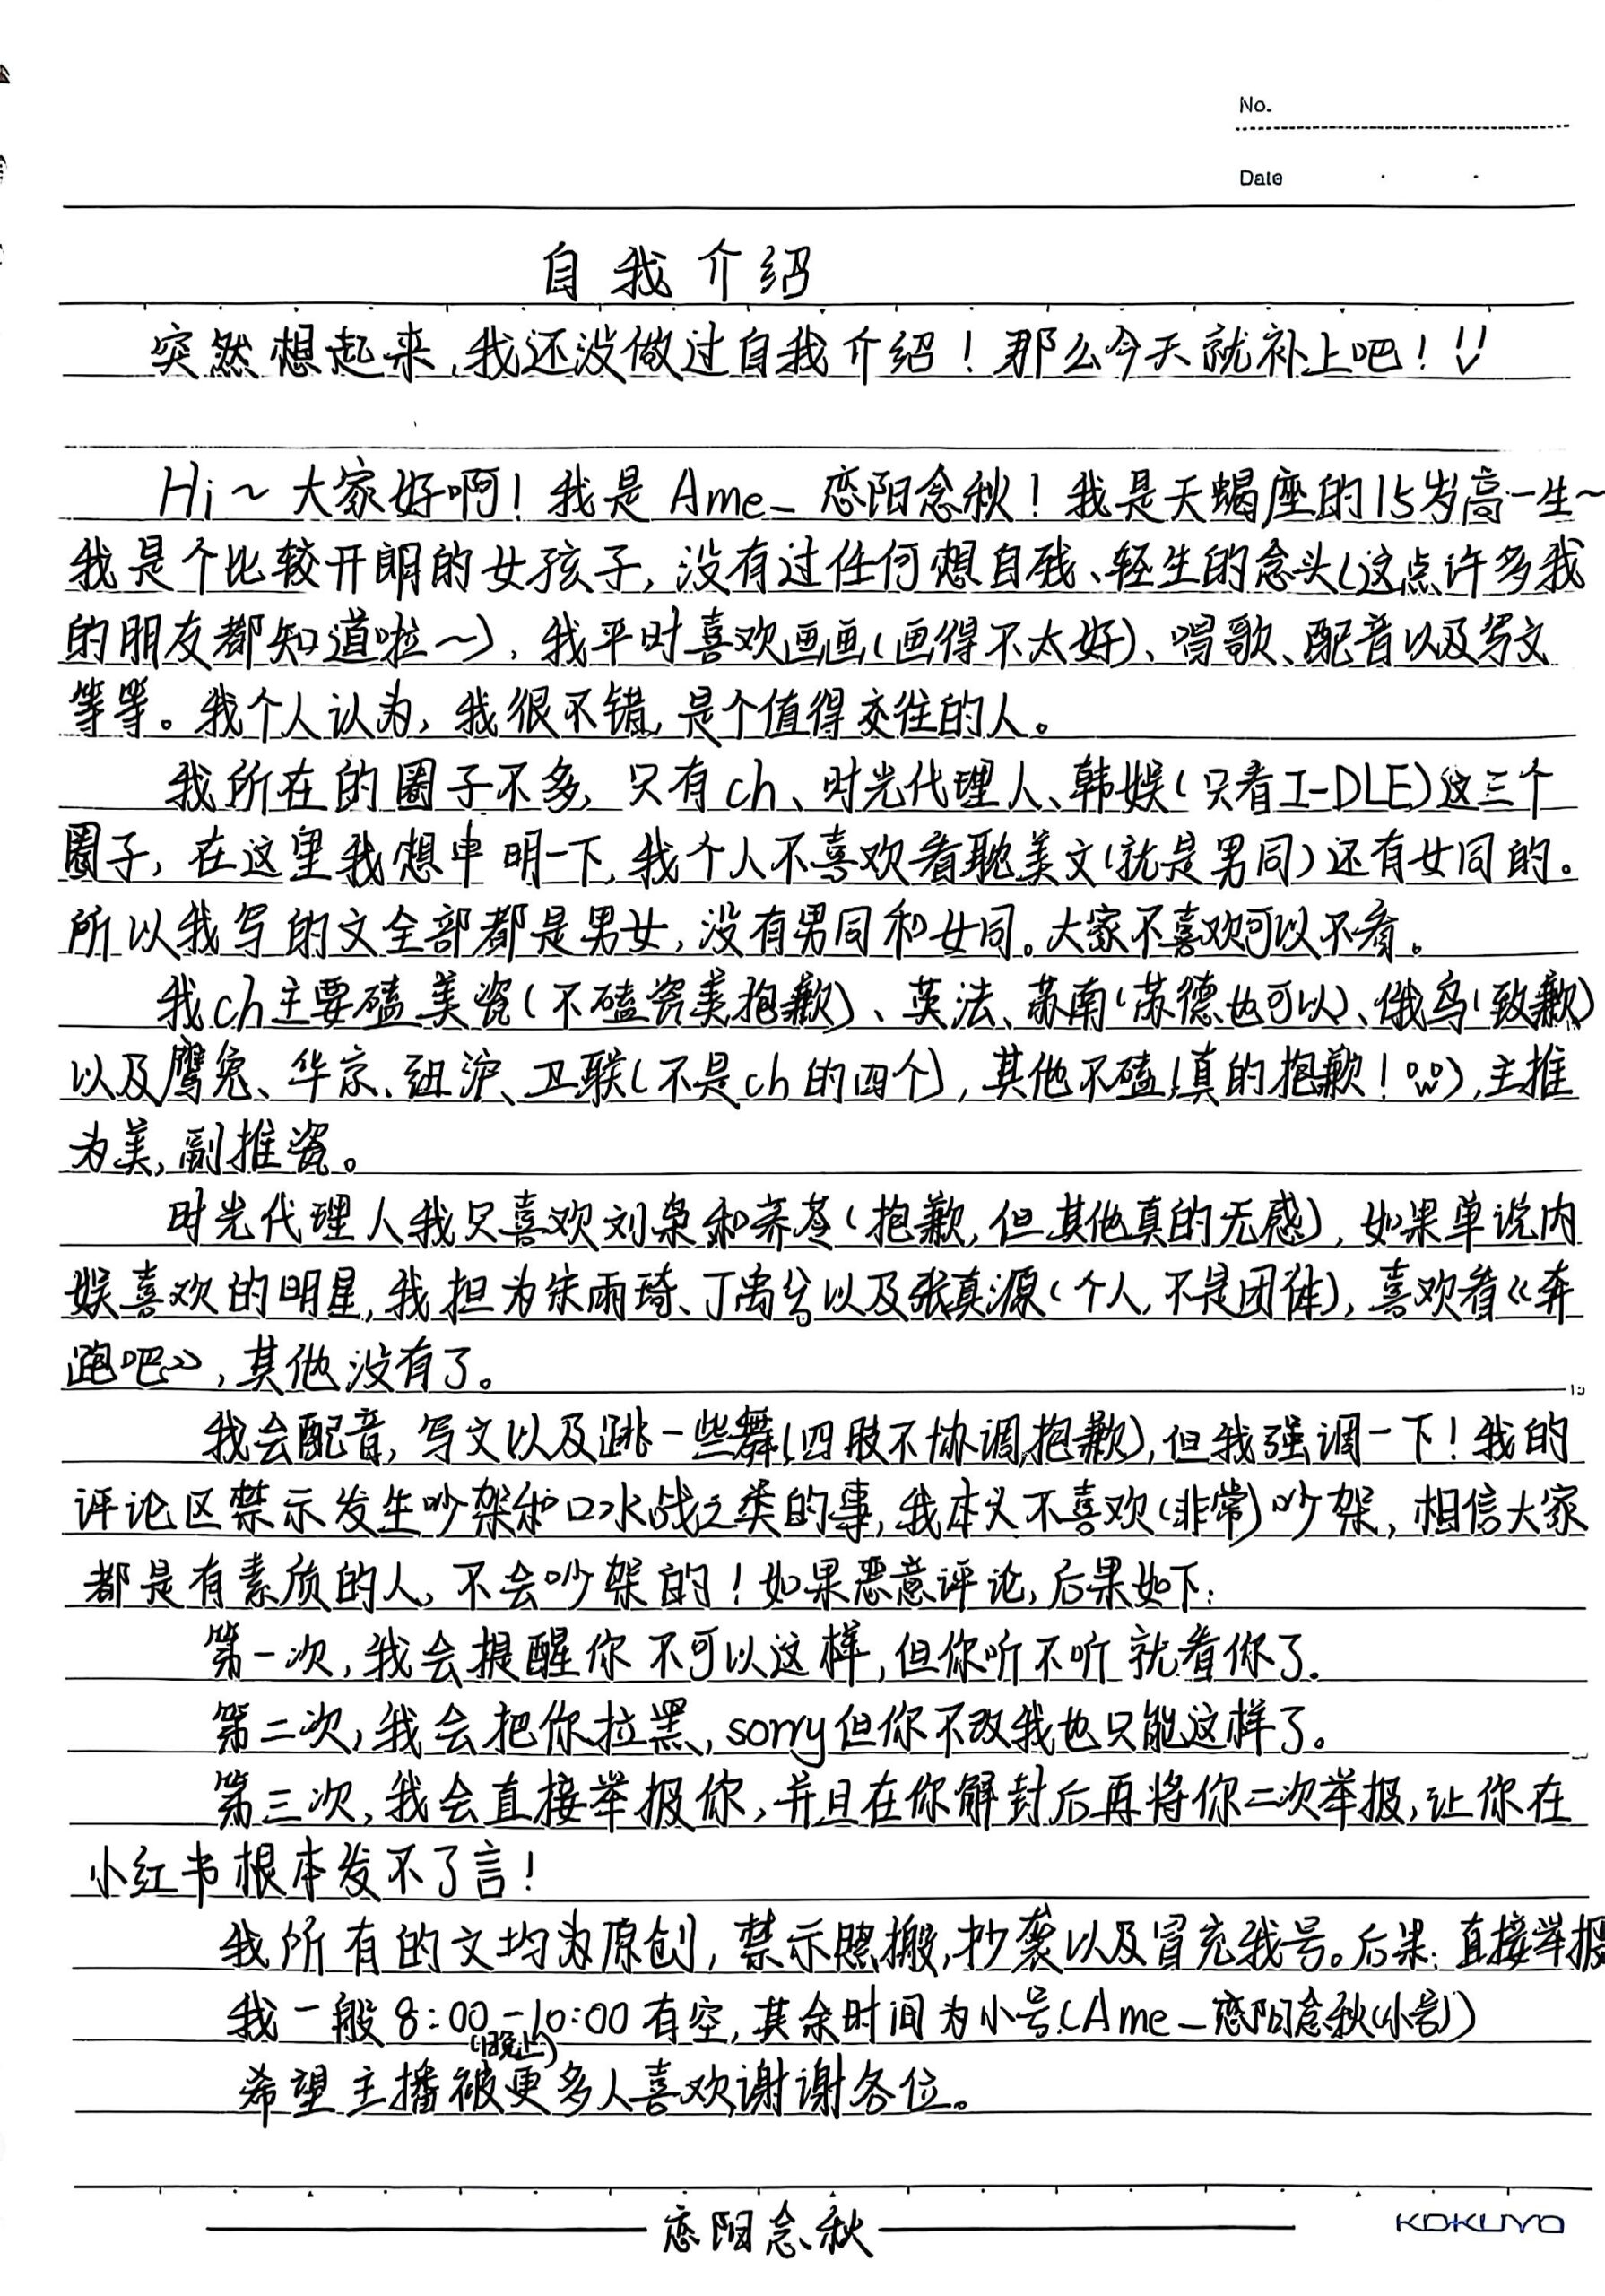 No.
Date
自我介绍
突然想起来,我还没做过自我介绍！那么今天就补上吧！！！
Hi～大家好啊！我是Ame_恋阳念秋！我是天蝎座的15岁高一生～
我是个比较开朗的女孩子,没有过任何想自残、轻生的念头(这点许多我
的朋友都知道啦～),我平时喜欢画画(画得不太好)、唱歌、配音以及写文
等等。我个人认为,我很不错,是个值得交往的人。
我所在的圈子不多,只有ch、时光代理人、韩娱(只看I-DLE)这三个
圈子,在这里我想申明一下,我个人不喜欢看耽美文(就是男同)还有女同的。
所以我写的文全部都是男女,没有男同和女同。大家不喜欢可以不看。
我ch主要磕美瓷(不磕瓷美抱歉)、英法、苏南(苏德也可以)、俄乌(致歉)
以及鹰兔、华京、纽沪、卫联(不是ch的四个),其他不磕(真的抱歉！),主推
为美,副推瓷。
时光代理人我只喜欢刘枭和乔苓(抱歉,但其他真的无感),如果单说内
娱喜欢的明星,我担为宋雨琦、丁禹兮以及张真源(个人,不是团体),喜欢看《奔
跑吧》,其他没有了。
我会配音,写文以及跳一些舞(四肢不协调,抱歉),但我强调一下！我的
评论区禁示发生吵架和口水战之类的事,我本义不喜欢(非常)吵架,相信大家
都是有素质的人,不会吵架的！如果恶意评论,后果如下：
第一次,我会提醒你不可以这样,但你听不听就看你了.
第二次,我会把你拉黑,sorry但你不改我也只能这样了。
第三次,我会直接举报你,并且在你解封后再将你二次举报,让你在
小红书根本发不了言！
我所有的文均为原创,禁示照搬,抄袭以及冒充我号。后果：直接举报
我一般8:00-10:00有空,其余时间为小号(Ame_恋阳念秋(小号))
(指晚上)
希望主播被更多人喜欢,谢谢各位。
恋阳念秋
KOKUYO